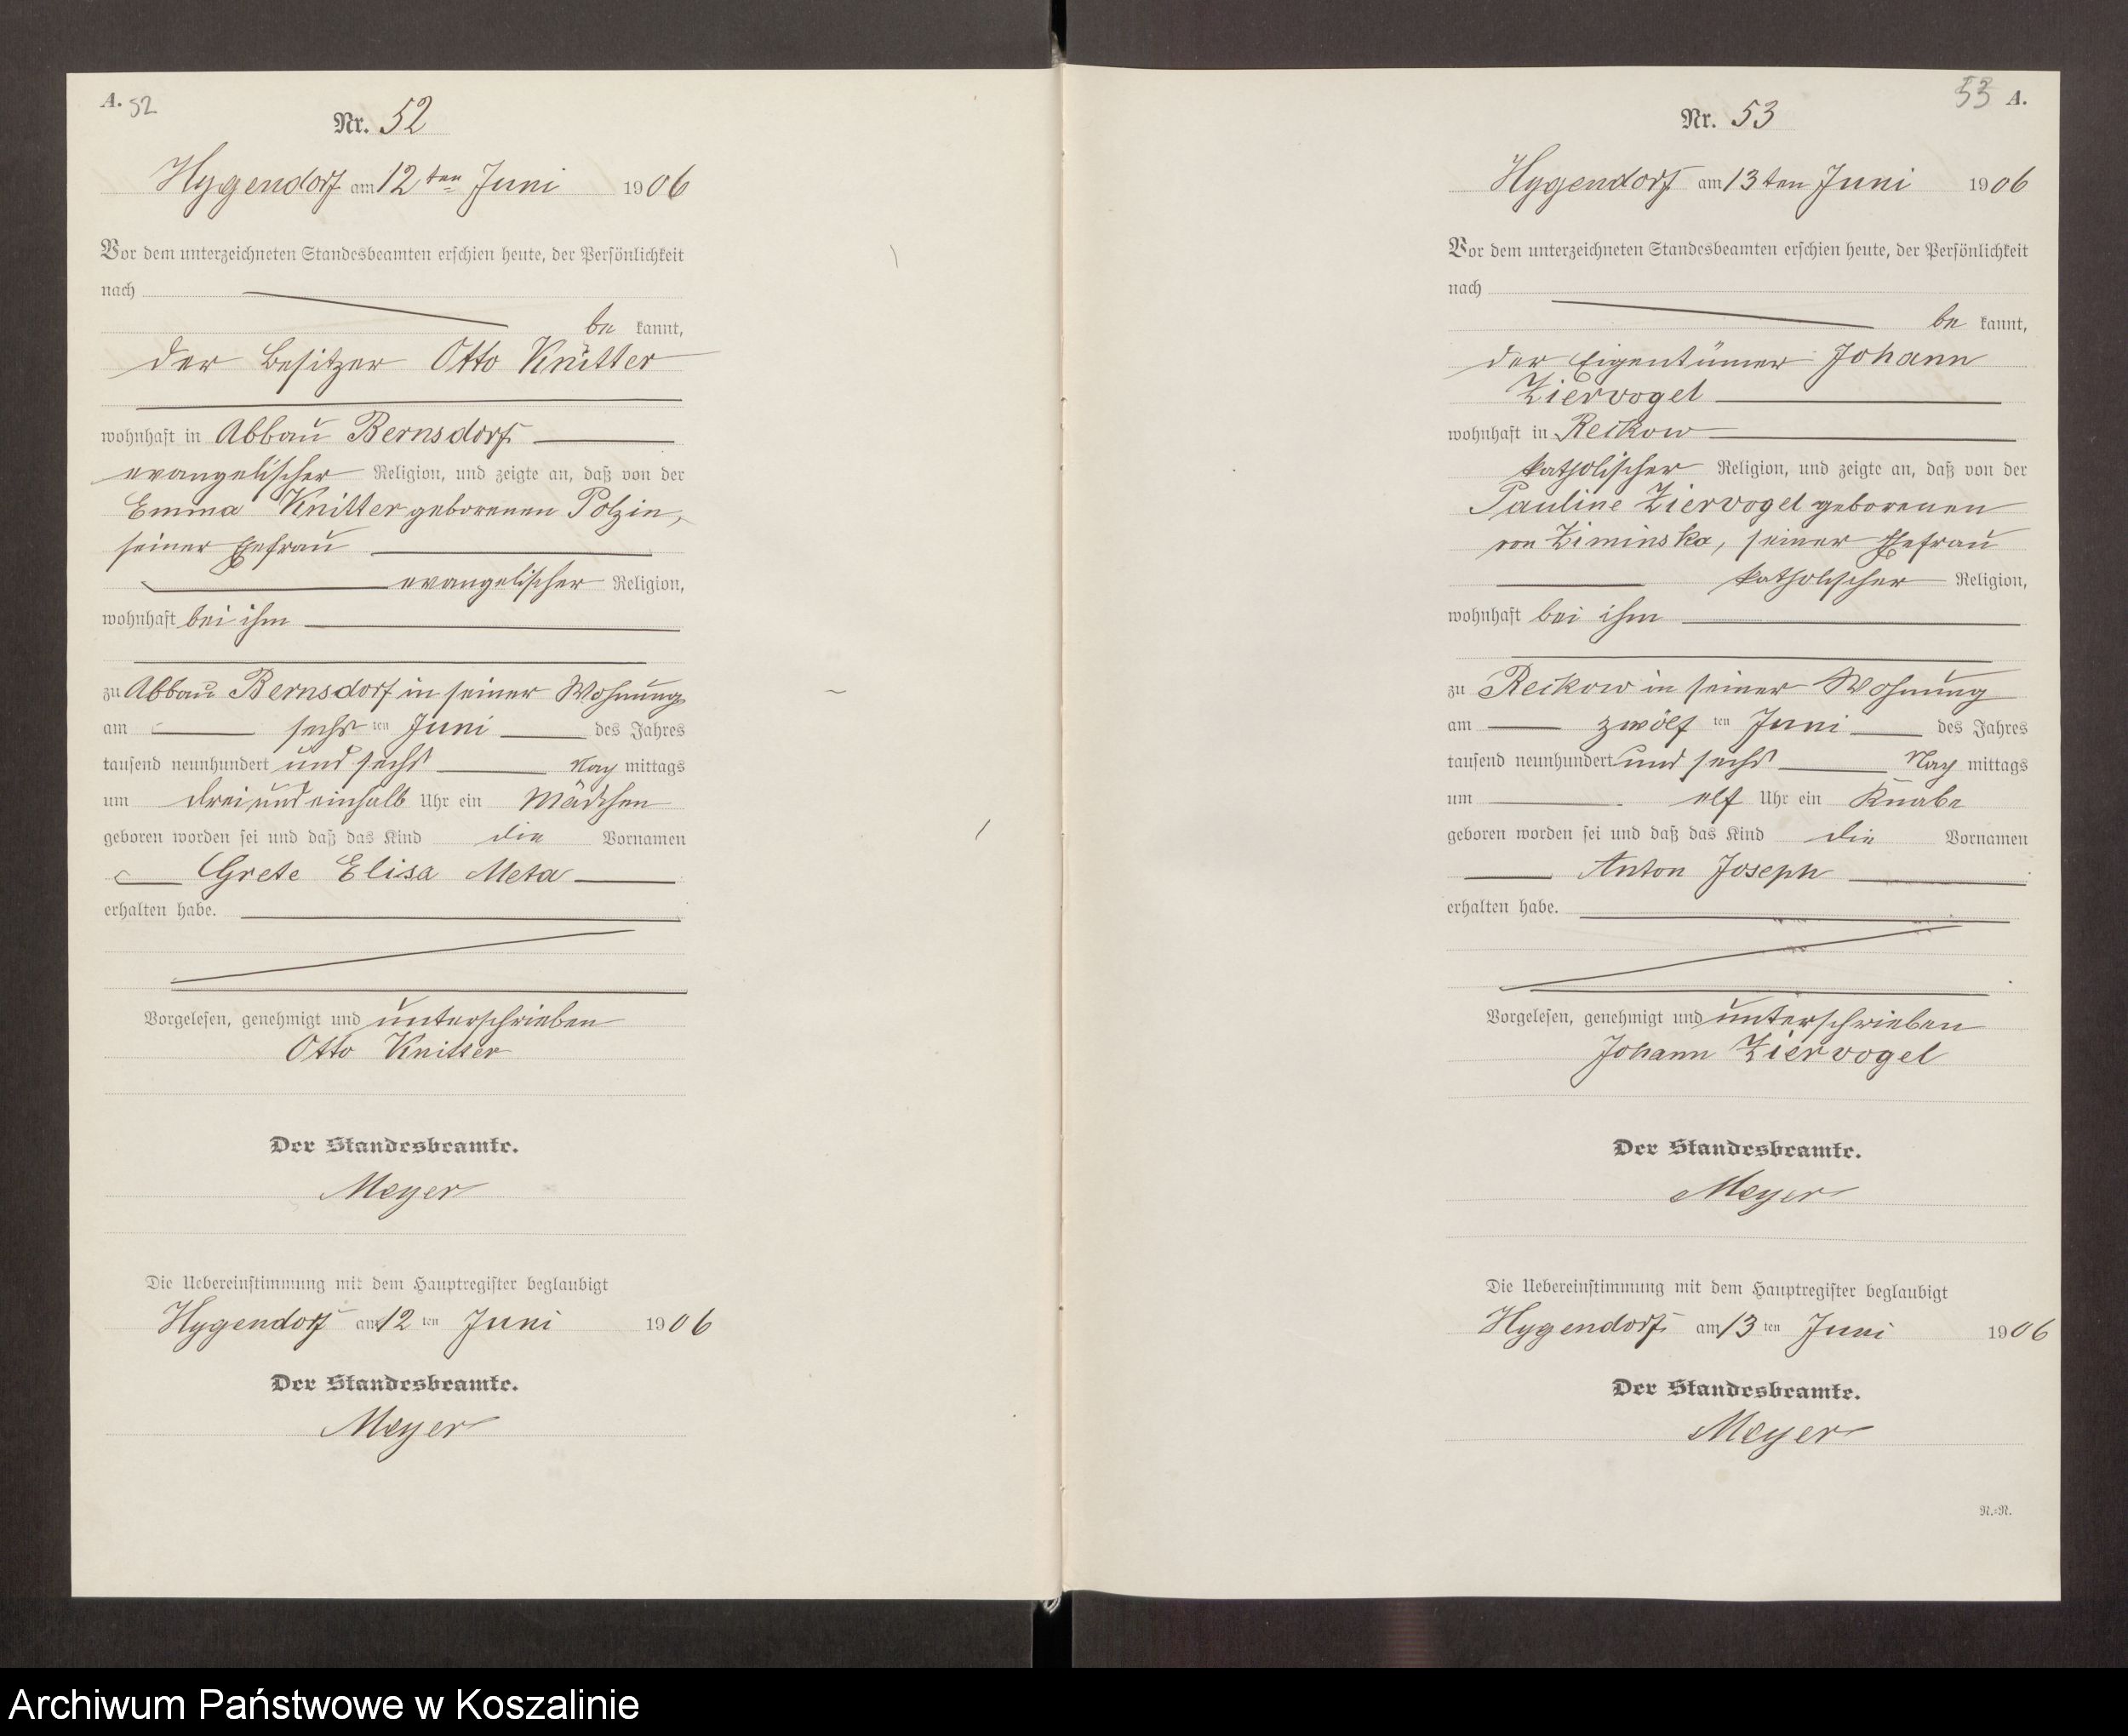 A. 52
Nr. 52
Hygendorf am 12ten Juni 1906
Vor dem unterzeichneten Standesbeamten erschien heute, der Persönlichkeit
nach
be kannt,
der Besitzer Otto Knitter
wohnhaft in Abbau Bernsdorf
evangelischer Religion, und zeigte an, daß von der
Emma Knitter geborenen Polzin,
seiner Ehefrau
evangelischer Religion,
wohnhaft bei ihm
zu Abbau Bernsdorf in seiner Wohnung
am sechs ten Juni des Jahres
tausend neunhundert und sechs Nach mittags
um drei und einhalb Uhr ein Mädchen
geboren worden sei und daß das Kind die Vornamen
Grete Elisa Meta
erhalten habe.
Vorgelesen, genehmigt und unterschrieben
Otto Knitter
Der Standesbeamte.
Meyer
Die Uebereinstimmung mit dem Hauptregister beglaubigt
Hygendorf am 12 ten Juni 1906
Der Standesbeamte.
Meyer
53 A.
Nr. 53
Hygendorf am 13ten Juni 1906
Vor dem unterzeichneten Standesbeamten erschien heute, der Persönlichkeit
nach
be kannt,
der Eigentümer Johann
Ziervogel
wohnhaft in Reckow
katholischer Religion, und zeigte an, daß von der
Pauline Ziervogel geborenen
von Ziminska, seiner Ehefrau
katholischer Religion,
wohnhaft bei ihm
zu Reckow in seiner Wohnung
am zwölf ten Juni des Jahres
tausend neunhundert und sechs Nach mittags
um elf Uhr ein Knabe
geboren worden sei und daß das Kind die Vornamen
Anton Joseph
erhalten habe.
Vorgelesen, genehmigt und unterschrieben
Johann Ziervogel
Der Standesbeamte.
Meyer
Die Uebereinstimmung mit dem Hauptregister beglaubigt
Hygendorf am 13 ten Juni 1906
Der Standesbeamte.
Meyer
N.=N.
Archiwum Państwowe w Koszalinie